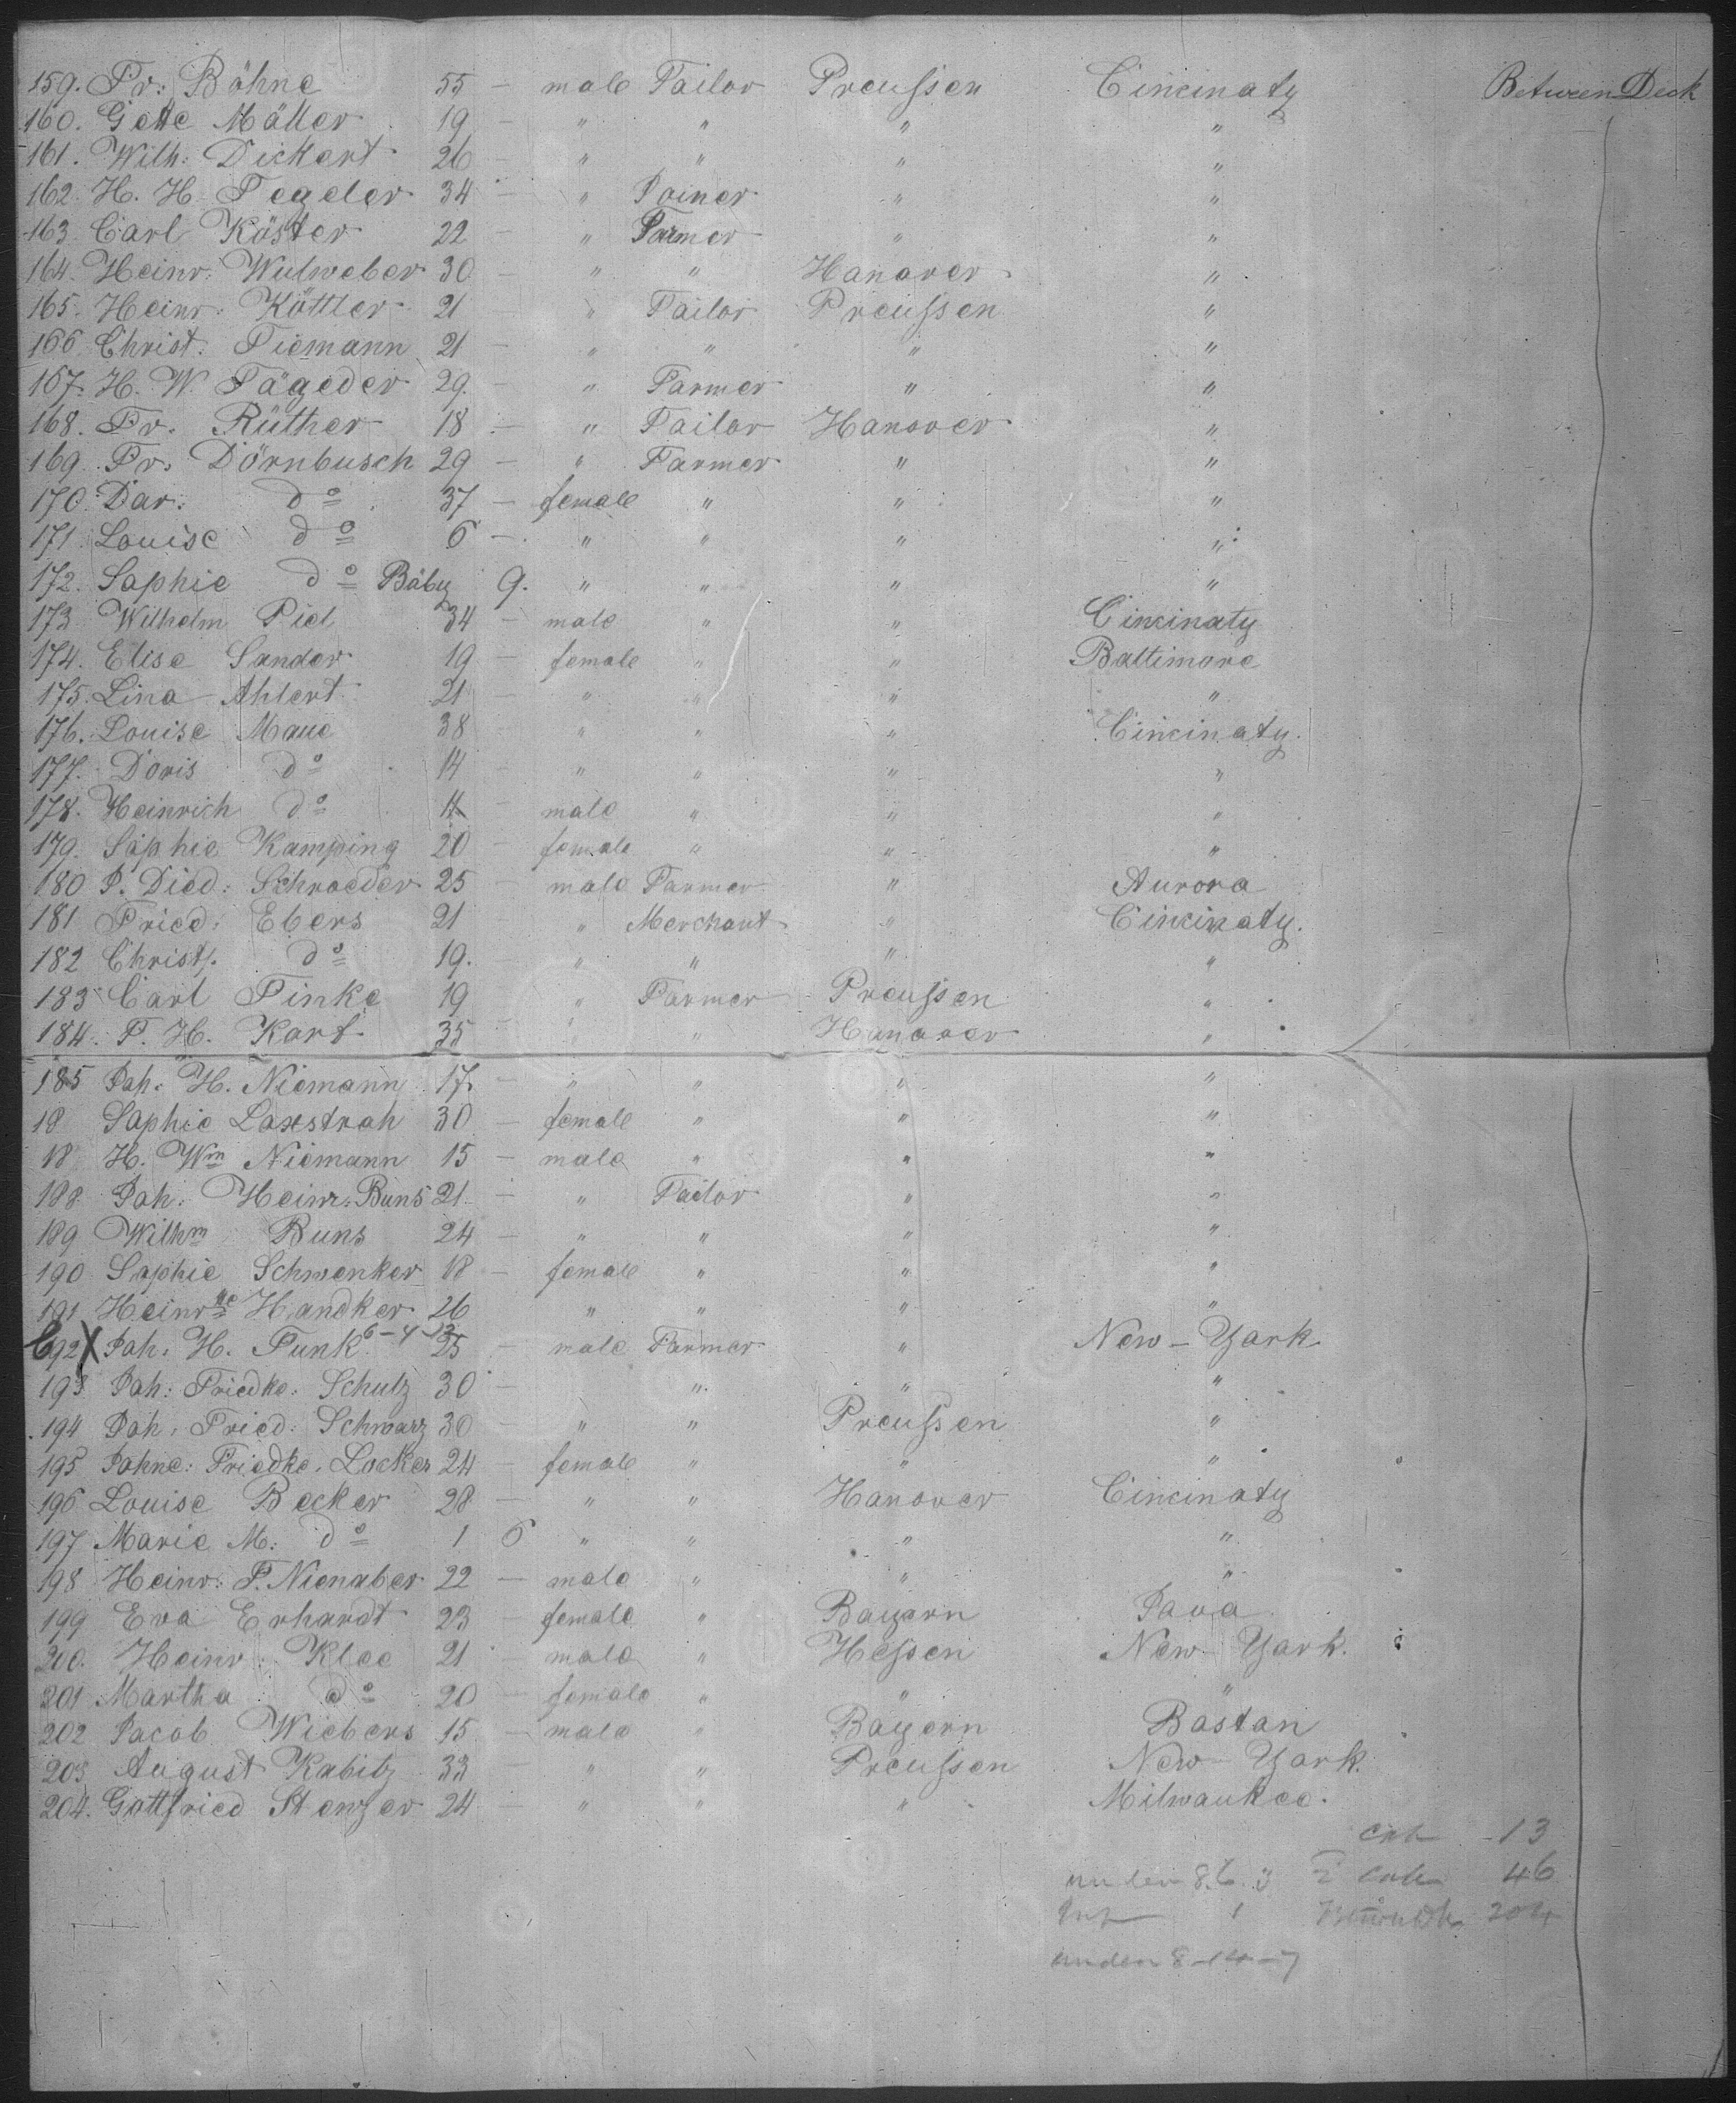 159. Fr: Böhne 55 — male Tailor Preußen Cincinaty Between Deck
160. Gette Möller 19 — " " " "
161. Wilh: Dickert 26 " " " "
162. H. H. Tegeler 34 — " Joiner " "
163. Carl Köster 22 — " Farmer " "
164. Heinr: Wulweber 30 — " " Hanover "
165. Heinr: Köttler 21 " Tailor Preußen "
166 Christ. Tiemann 21 — " " " "
167. H. W. Tägeder 29. — " Farmer " "
168. Fr. Rüther 18 — " Tailor Hanover "
169. Fr. Dörnbusch 29 — " Farmer " "
170. Dor: do 37 — female " " "
171. Louise do 6 — " " " "
172. Sophie do Baby 9. " " " "
173 Wilhelm Piel 34 — male " " Cincinaty
174. Elise Sander 19 — female " " Baltimore
175. Lina Ahlert 21 — " " " "
176. Louise Maue 38 " " " Cincinaty.
177. Doris do 14 — " " " "
178. Heinrich do 11 — male " " "
179. Sophie Kamping 20 — female " " "
180 J. Died: Schroeder 25 — male Farmer " Aurora
181 Fried: Ebers 21 " Merchant " Cincinaty.
182 Christ. do 19. " " " "
183 Carl Finke 19 " Farmer Preußen "
184. F. H. Kort 35 " " Hanover "
185 Joh. H. Niemann 17. — " " " "
18 Sophie Laxestroh 30 — female " " "
18 H. Wm Niemann 15 — male " " "
188 Joh. Heinr. Buns 21. — " Tailor " "
189 Wilhm Buns 24 — " " " "
190 Sophie Schwenker 18 — female " " "
191 Heinrne Handker 26 " " " "
192 X Joh. H. Funk 25 — male Farmer " New-York
193 Joh: Friedke: Schulz 30 — " " "
194 Joh. Fried: Schwarz 30 — " " Preußen "
195 Johne: Friedke. Locker 24 — female " " "
196 Louise Becker 28 — " " Hanover Cincinaty
197 Marie M. do 1 6 " " " "
198 Heinr: F. Nienaber 22 — male " " "
199 Eva Erhardt 23 — female " Bayern Jova
200. Heinr Klee 21 male " Hessen New York.
201 Martha do 20 — female " " "
202 Jacob Wiebers 15 — male " Bayern Boston
203 August Kabitz 33 — " " Preußen New York.
204. Gottfried Stenzer 24 — " " " Milwaukee.
cab — 13
under 8.6.3 2 cab 46
Inf 1 204
under 8-14-7